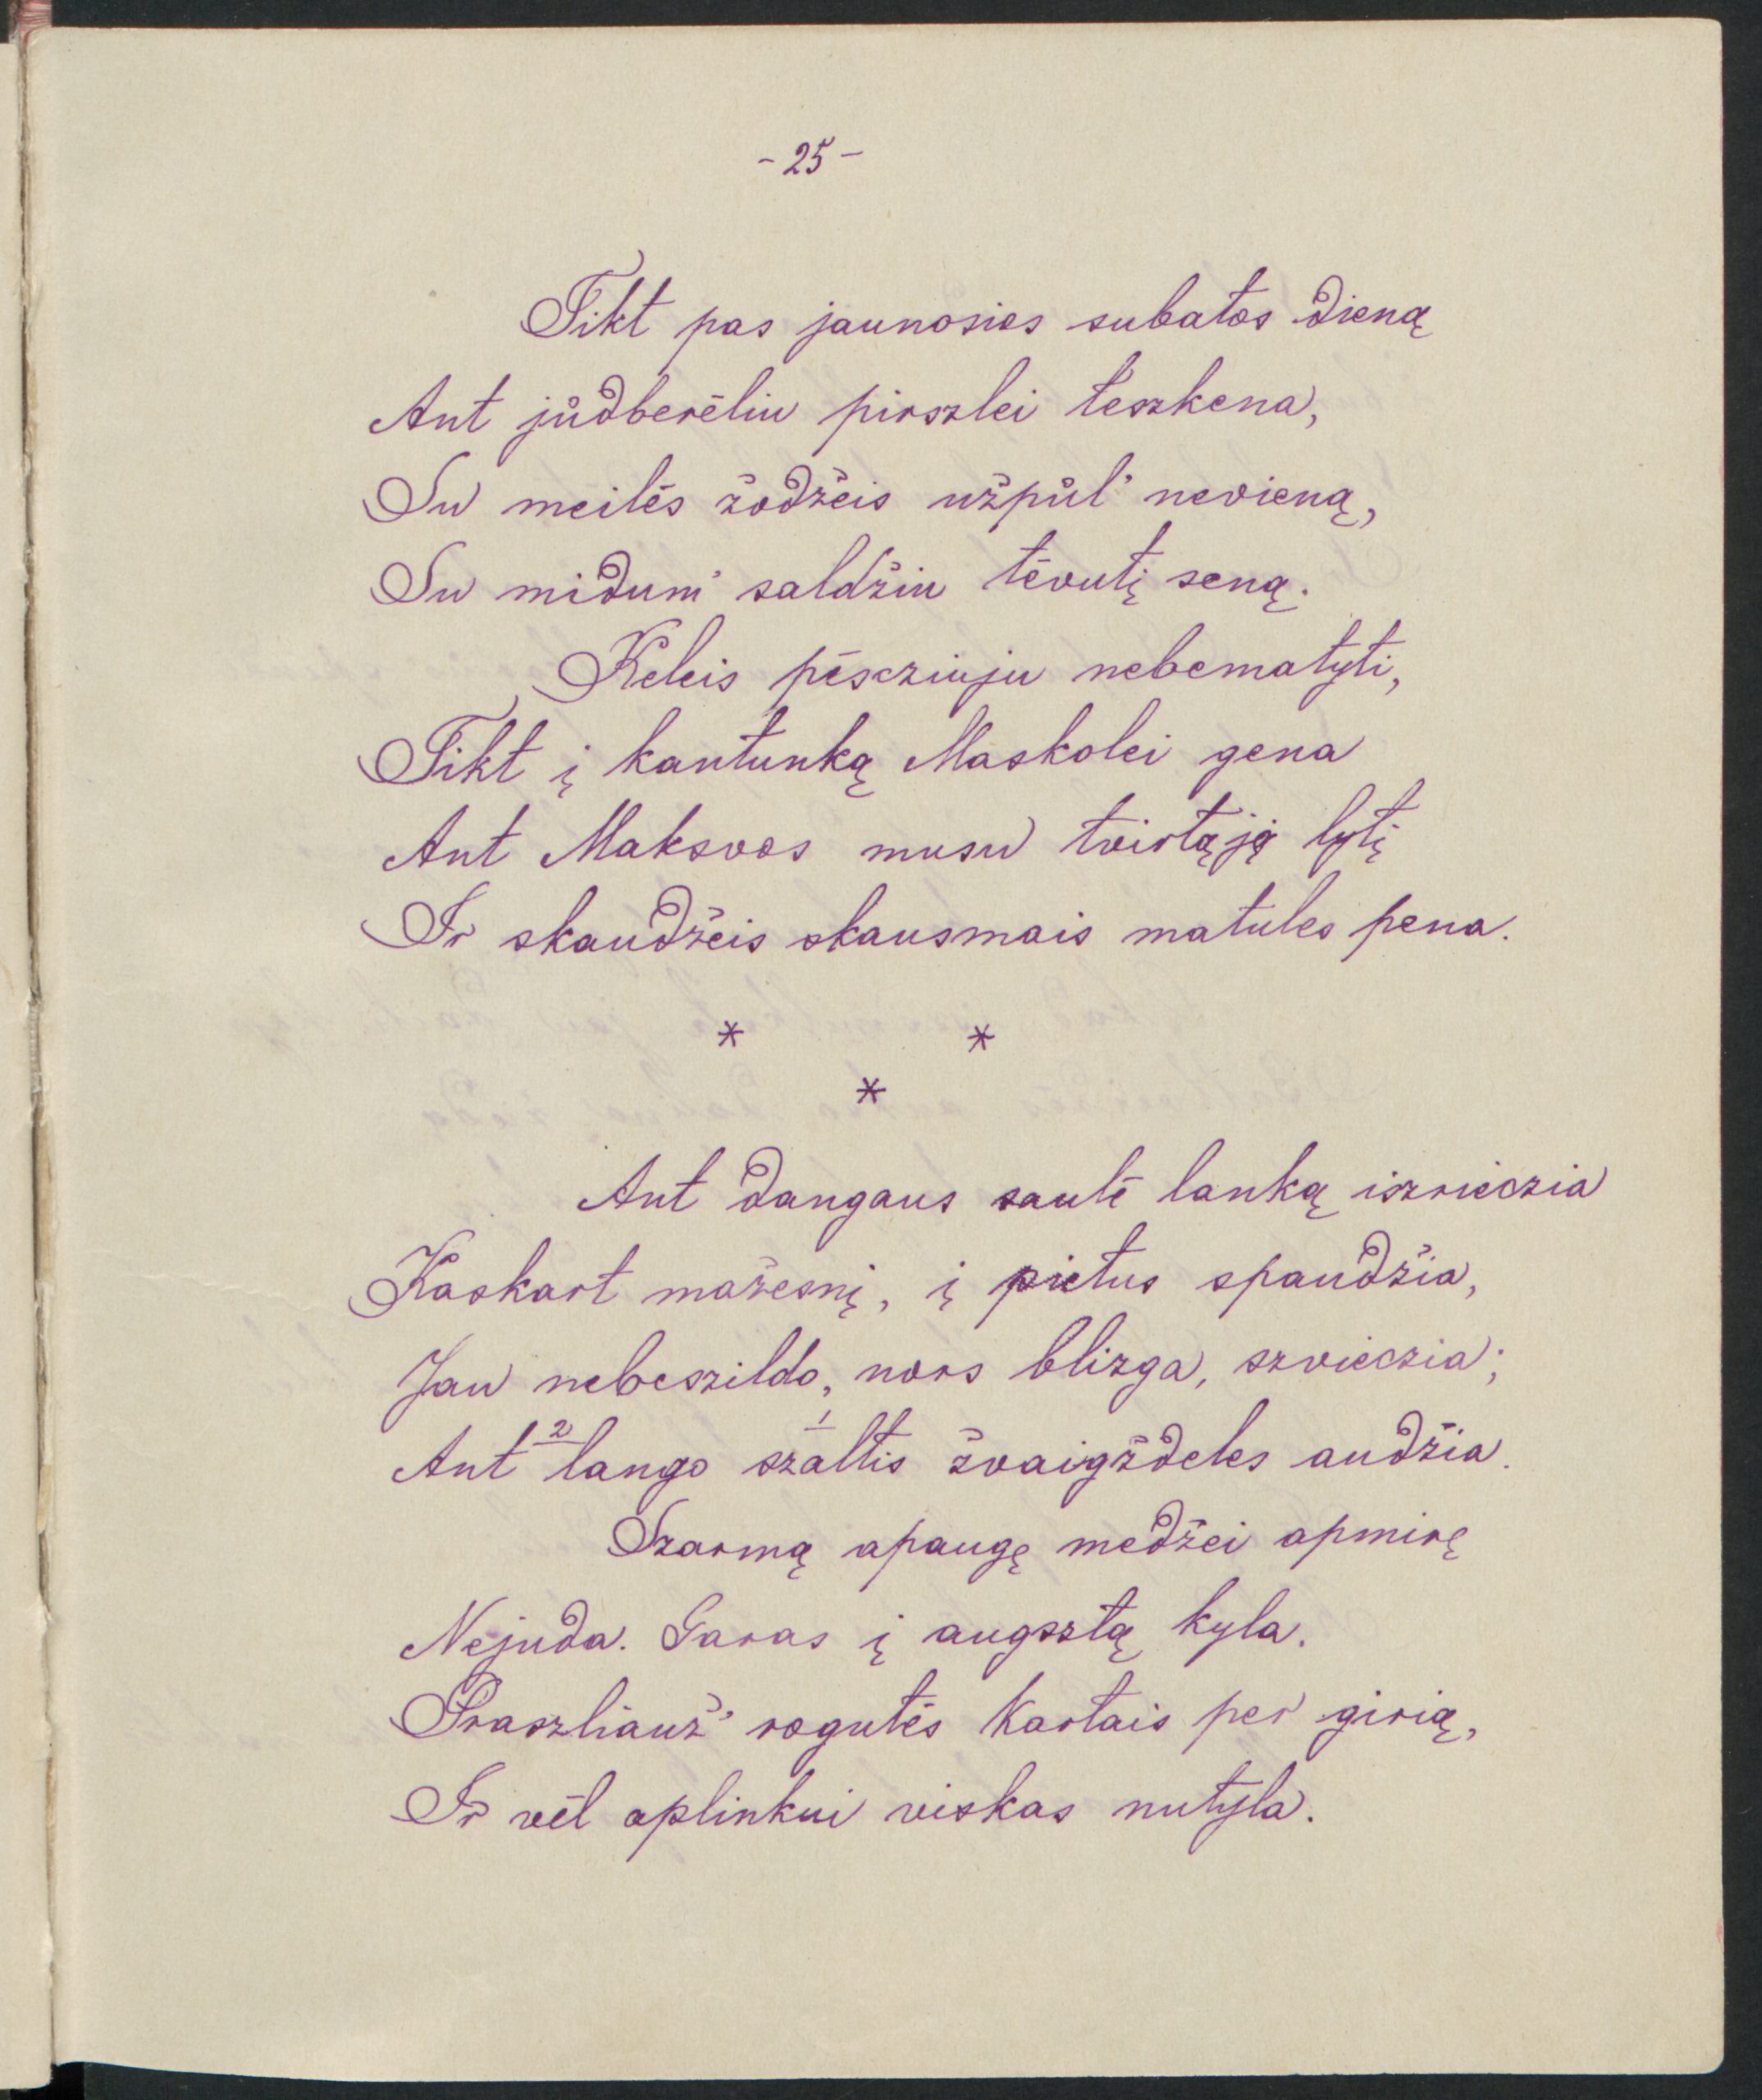 - 25 -
Tikt pas jaunosios subatos dieną
Ant jůdberėliu pirszlei teszkena,
Su meilės žodžeis užpůl' nevieną,
Su midum' saldžiu tėvutį seną.
Keleis pėscziuju nebematyti,
Tikt į kantunką Maskolei gena
Ant Maksvos musu tvirtąją lytį
Ir skaudžeis skausmais matules pena.
* *
*
Ant dangaus saulė lanką iszrieczia
Kaskart mažesnį, į pietus spaudžia,
Jau nebeszildo, nors blizga, szvieczia;
Ant 2 lango 1 szaltis žvaigždeles audžia.
Szarmą apaugę medžei apmirę
Nejuda. Garas į augsztą kyla.
Praszliauž' rogutės kartais per girią,
Ir vėl aplinkui viskas nutyla.